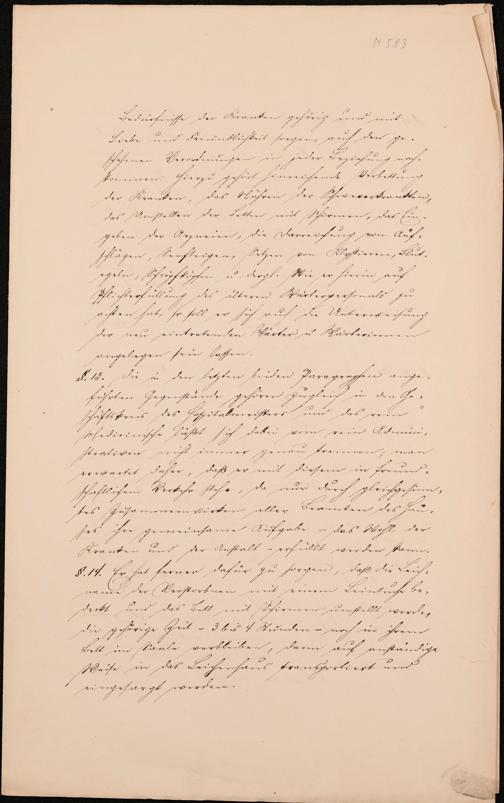 N 583
Bedürfnisse der Kranken gehörig und mit
Liebe und Freundlichkeit sorgen, auch den ge-
schehenen Verordnungen in jeder Beziehung nach-
kommen. Hierzu gehört hinreichende Verbettung
der Kranken, das Nähren der Schwererkrankten,
das Umstellen der Betten mit Schirmen, das Ein-
geben der Arzneien, die Darreichung von Auf-
schlägen, Senfteigen, Setzen von Klystieren, Blut-
egeln, Schröpfköpfen u. dergl. Wie er hierin auf
Pflichterfüllung des älteren Wärterpersonals zu
achten hat, so soll er sich auch die Unterweisung
der neu eintretenden Wärter u. Wärterinnen
angelegen sein lassen.
§. 13. Die in den letzten beiden Paragraphen ange-
führten Gegenstände gehören zugleich in den Ge-
schäftskreis des Hospitalmeisters und das rein
Medicinische läßt sich dabei vom rein Admini-
strativen nicht immer genau trennen, man
erwartet daher, daß er mit diesem in freund-
schaftlichem Verkehr stehe, da nur durch gleichgesinn-
tes Zusammenwirken aller Beamten des Hau-
ses ihre gemeinsame Aufgabe – das Wohl der
Kranken und der Anstalt – erfüllt werden kann.
§. 14. Er hat ferner dafür zu sorgen, daß die Leich-
name der Verstorbenen mit einem Leintuche be-
deckt und das Bett mit Schirmen umstellt werde,
die gehörige Zeit – 3 bis 4 Stunden – noch in ihrem
Bett im Saale verbleiben, dann auf anständige
Weise in das Leichenhaus transportiert und
eingesargt werden.